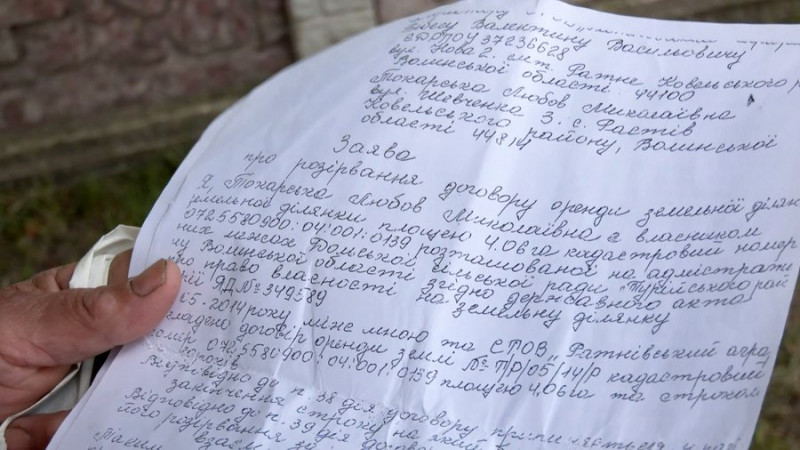 Бебесу Валентину Васильовичу
ЄДРПОУ 37236628
вул. Нова 2. смт. Ратне Ковельського р
Волинської області 44100
Токарська Любов Миколаївна
вул. Шевченка 3. с. Фастів
Ковельського району, Волинської
області 44814
Заява
про розірвання договору оренди земельної ділян
Я, Токарська Любов Миколаївна є власником
земельної ділянки площею 4.06 га кадастровий номер
0725580900:04:001:0139 розташованої на адміністрати
них межах сільської ради "Турійського рай
ну Волинської області згідно державного акта
право власності на земельну ділянку
рії ЯД № 349589
05-2014 року між мною та СТОВ „Ратнівський агра
кладено договір оренди землі № Т/Р/05/14/Р кадастровий
номер 0725580900:04:001:0139 площею 4,06 га та строком
років
Відповідно до п. 38 дія договору припиняється у разі
закінчення строку на який
Відповідно до п. 39 дія договору
його розірвання
Таким